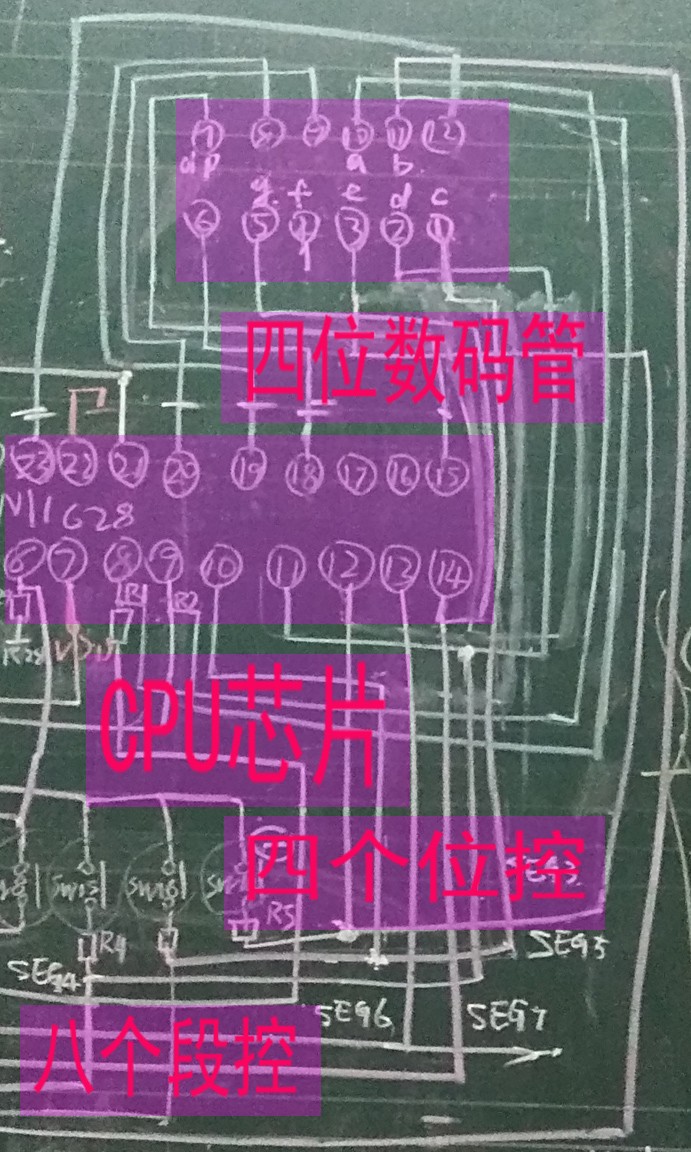 7 8 9 10 11 12
dp a b
g f e d c
6 5 4 3 2 1
四位数码管
23 22 21 20 19 18 17 16 15
1628
6 7 8 9 10 11 12 13 14
R1 R2
CPU芯片
四个位控
R5
R4
SEG5
SEG4
SEG6 SEG7
八个段控